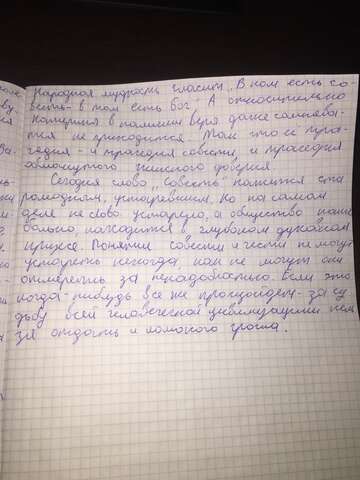 народная мудрость гласит: В ком есть со-
весть - в том есть бог". А относительно
Катерины в наличии веры даже сомнева-
тся не приходится. Так что её тра-
гедия - и трагедия совести и трагедия
обманутого женского доверия.
Сегодня слово, совесть кажится ста
ромодным, устаревшим. Но на самом
деле не слово устарело, а общество наше
больно, находится в глубоком духовном
кризисе. Понятия совести и чести не могут
устареть никогда как не могут они
отмереть за ненадобностью. Если это
когда-нибудь всё же произойдёт - за су
дьбу всей человеческой цивилизации нем
зя отдать и ломаного гроша.